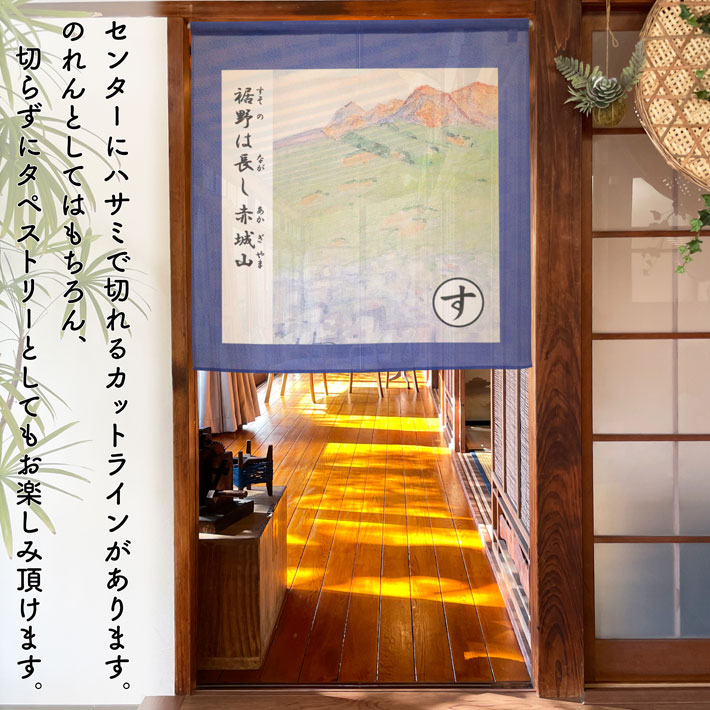 センターにハサミで切れるカットラインがあります。
のれんとしてはもちろん、
切らずにタペストリーとしてもお楽しみ頂けます。
す
裾野は長し赤城山
すその なが あかぎやま